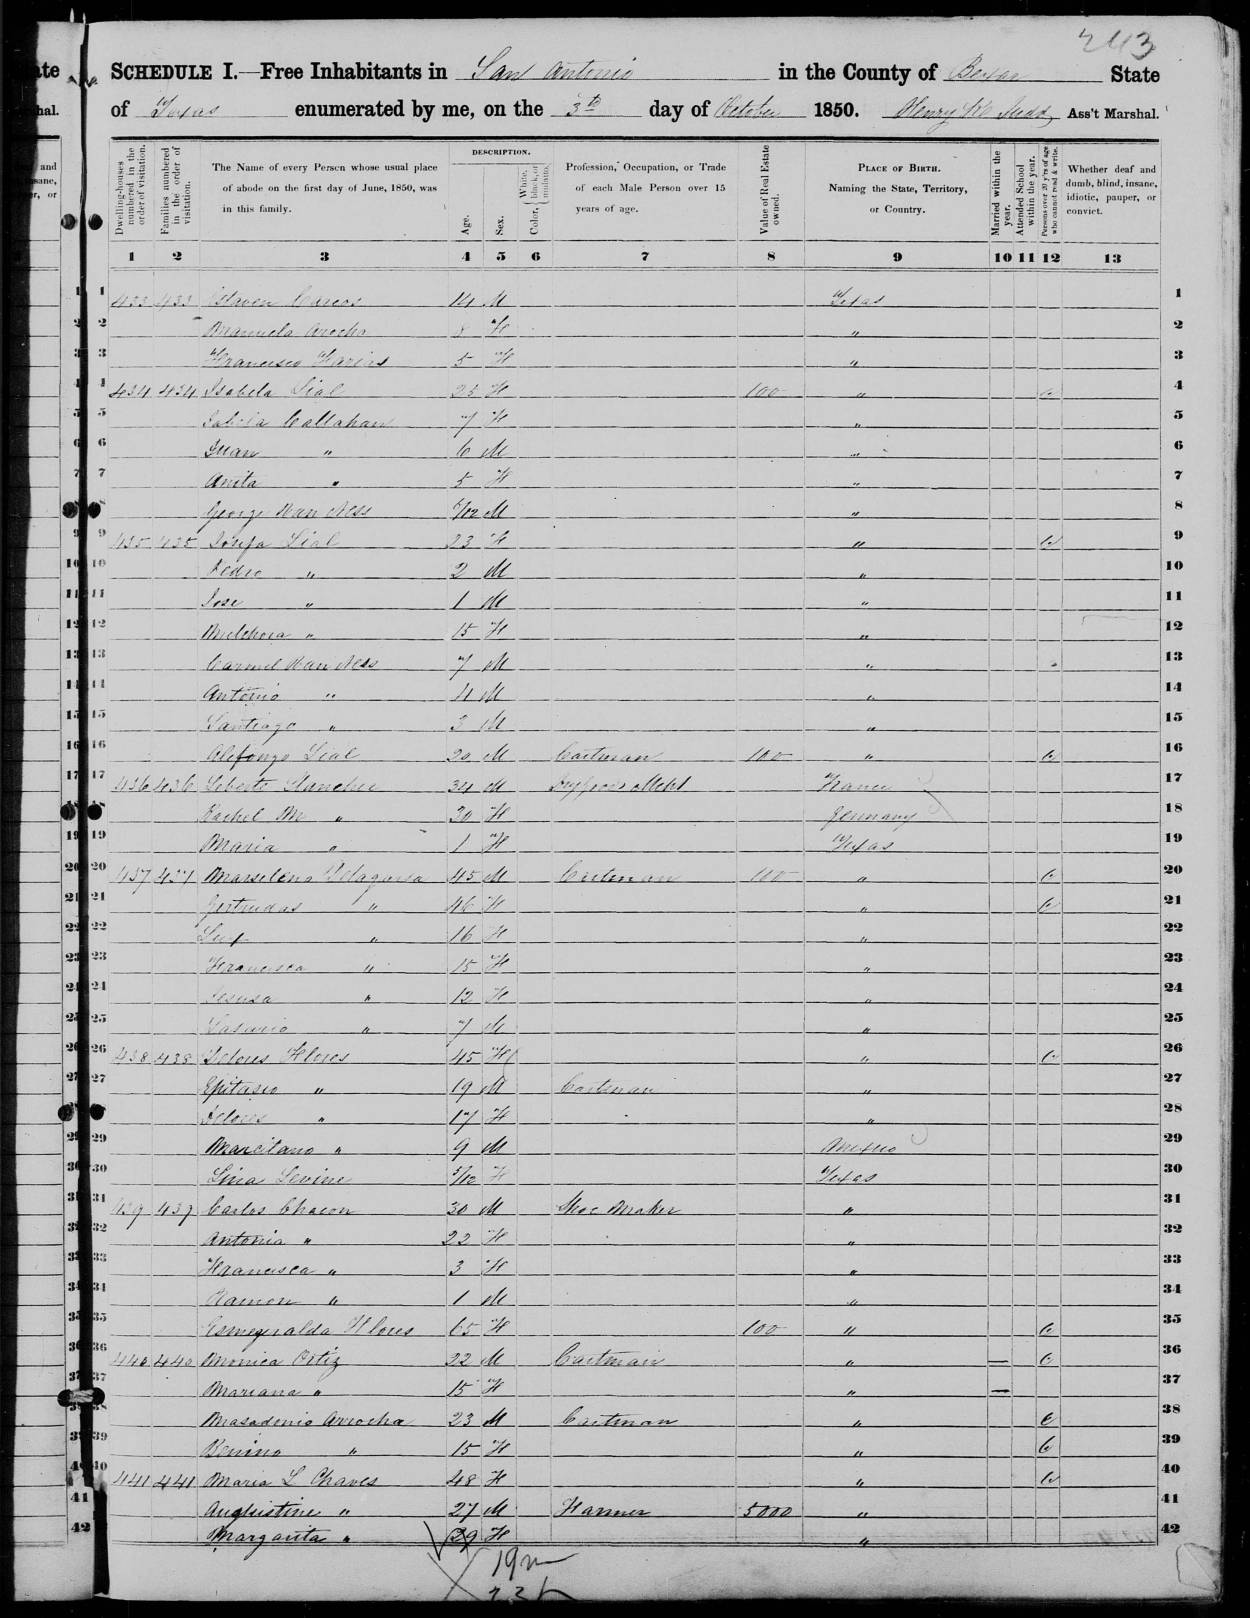 243
SCHEDULE I.—Free Inhabitants in San Antonio in the County of Bexar State
of Texas enumerated by me, on the 3th day of October 1850. Henry Ass't Marshal.
Dwelling-houses numbered in the order of visitation. Families numbered in the order of visitation. The Name of every Person whose usual place of abode on the first day of June, 1850, was in this family. DESCRIPTION. Age. Sex. Color, { White, black, or mulatto. Profession, Occupation, or Trade of each Male Person over 15 years of age. Value of Real Estate owned. PLACE OF BIRTH. Naming the State, Territory, or Country. Married within the year. Attended School within the year. Persons over 20 y'rs of age who cannot read & write. Whether deaf and dumb, blind, insane, idiotic, pauper, or convict.
1 2 3 4 5 6 7 8 9 10 11 12 13
1 433 433 Estaven 14 M Texas 1
2 Manuela Arocha 8 F " 2
3 Francisco 5 F " 3
4 434 434 Isabela Lial 25 F 100 " 4
5 Callahan 7 F " 5
6 Juan " 6 M " 6
7 Anita " 5 F " 7
8 George Van Ness /12 M " 8
9 435 435 Josefa Lial 23 F " 9
10 Pedro " 2 M " 10
11 Jose " 1 M " 11
12 Melchora " 15 F " 12
13 Carmel Van Ness 7 M " 13
14 Antonio " 4 M " 14
15 Santiago " 3 M " 15
16 Alifonzo Lial 20 M Cartman 100 " 16
17 436 436 34 M France 17
18 Rachel M " 20 F Germany 18
19 Maria " 1 F Texas 19
20 437 437 Marseleno Delagarsa 45 M Cartman 100 " 20
21 Gertrudas " 46 F " 21
22 " 16 F " 22
23 Francisca " 15 F " 23
24 Jesusa " 12 F " 24
25 " 7 M " 25
26 438 438 Delores Flores 45 F " 26
27 Epitasio " 19 M Cartman " 27
28 Delores " 17 F " 28
29 Marcilano " 9 M Mexico 29
30 Lina Levine 5/12 F Texas 30
31 439 439 Carlos Chacon 30 M Shoe Maker " 31
32 Antonia " 22 F " 32
33 Francisca " 3 F " 33
34 Ramon " 1 M " 34
35 Esmeyralda Flores 65 F 100 " 35
36 440 440 Monica Ortiz 22 M Cartman " — 36
37 Mariana " 15 F " — 37
38 Masadonio Arrocha 23 M Cartman " 38
39 Benino " 15 F " 39
40 441 441 Maria L Chaves 48 F " 40
41 Anghistine " 27 M Farmer 5000 " 41
42 Margarita " 29 F " 42
19 m
23 f